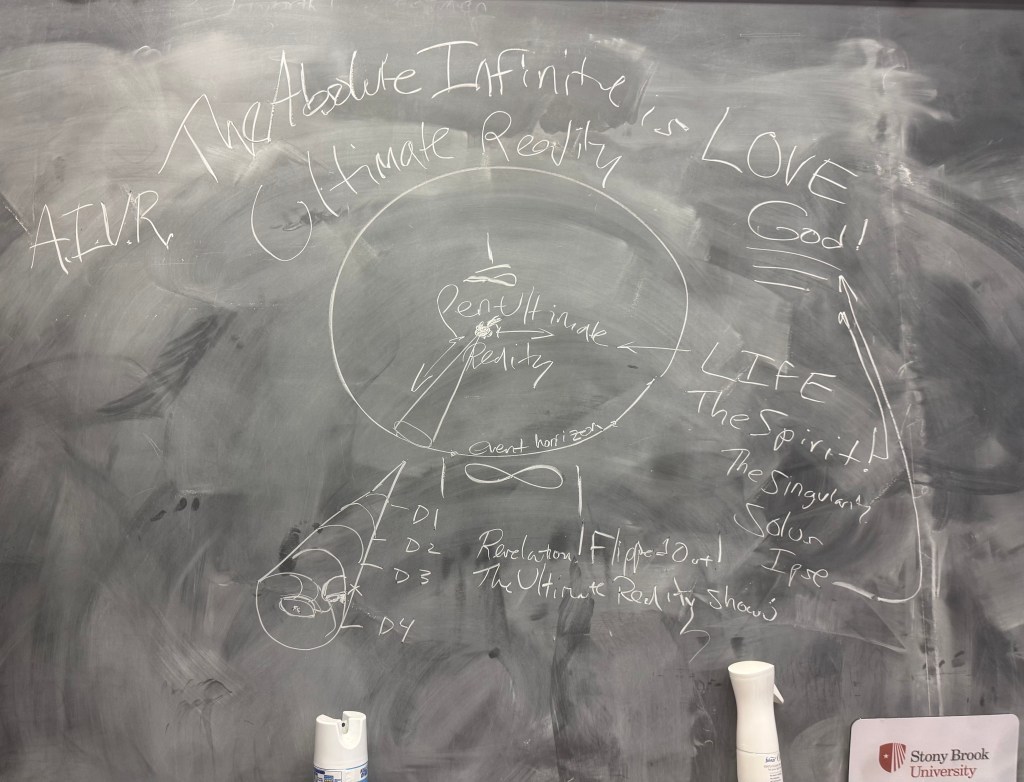 The Absolute Infinite is LOVE
A.I.U.R. Ultimate Reality God!
1
∞
Pen-Ultimate
Reality
LIFE
The Spirit!
The Singularity
Solus
Ipse
event horizon
|∞|
D1
D2
D3
D4
Revelation! Flipped Out!
The Ultimate Reality Show
Stony Brook
University